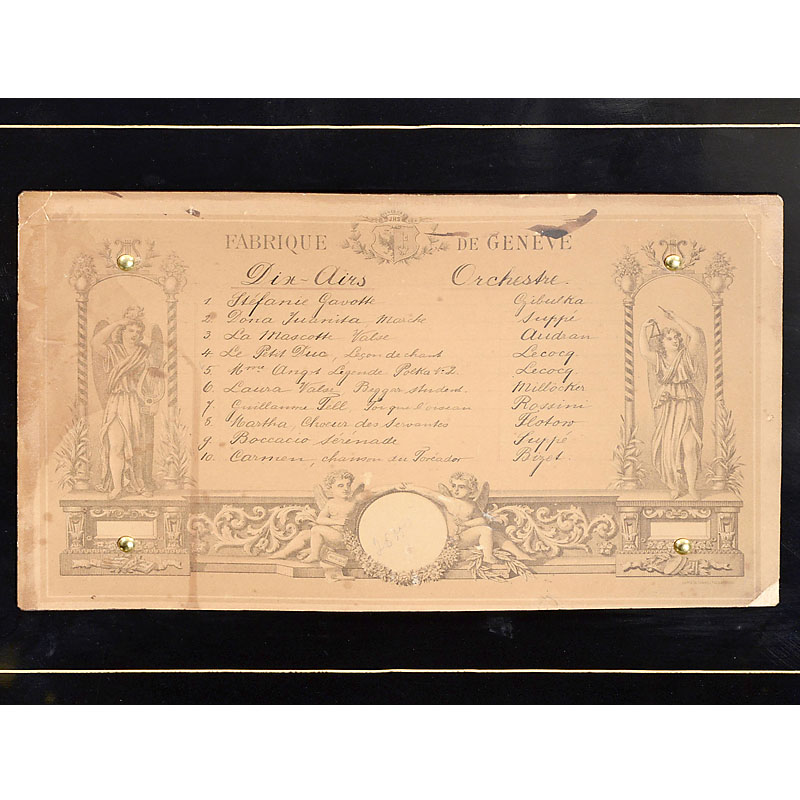 FABRIQUE DE GENÈVE
Dix-Airs Orchestre.
1 Stéfanie Gavotte Czibulka
2 Dona Juanita Marche Suppé
3 La Mascotte Valse Audran
4 Le Petit Duc, Leçon de chant Lecocq
5 Mme Angot Légende Polka Lecocq
6 Laura Valse Beggar student. Millöcker
7 Guillaume Tell, Rossini
8 Martha, Choeur des Servantes Flotow
9 Boccacio Serenade Suppé
10. Carmen, chanson du Toréador Bizet